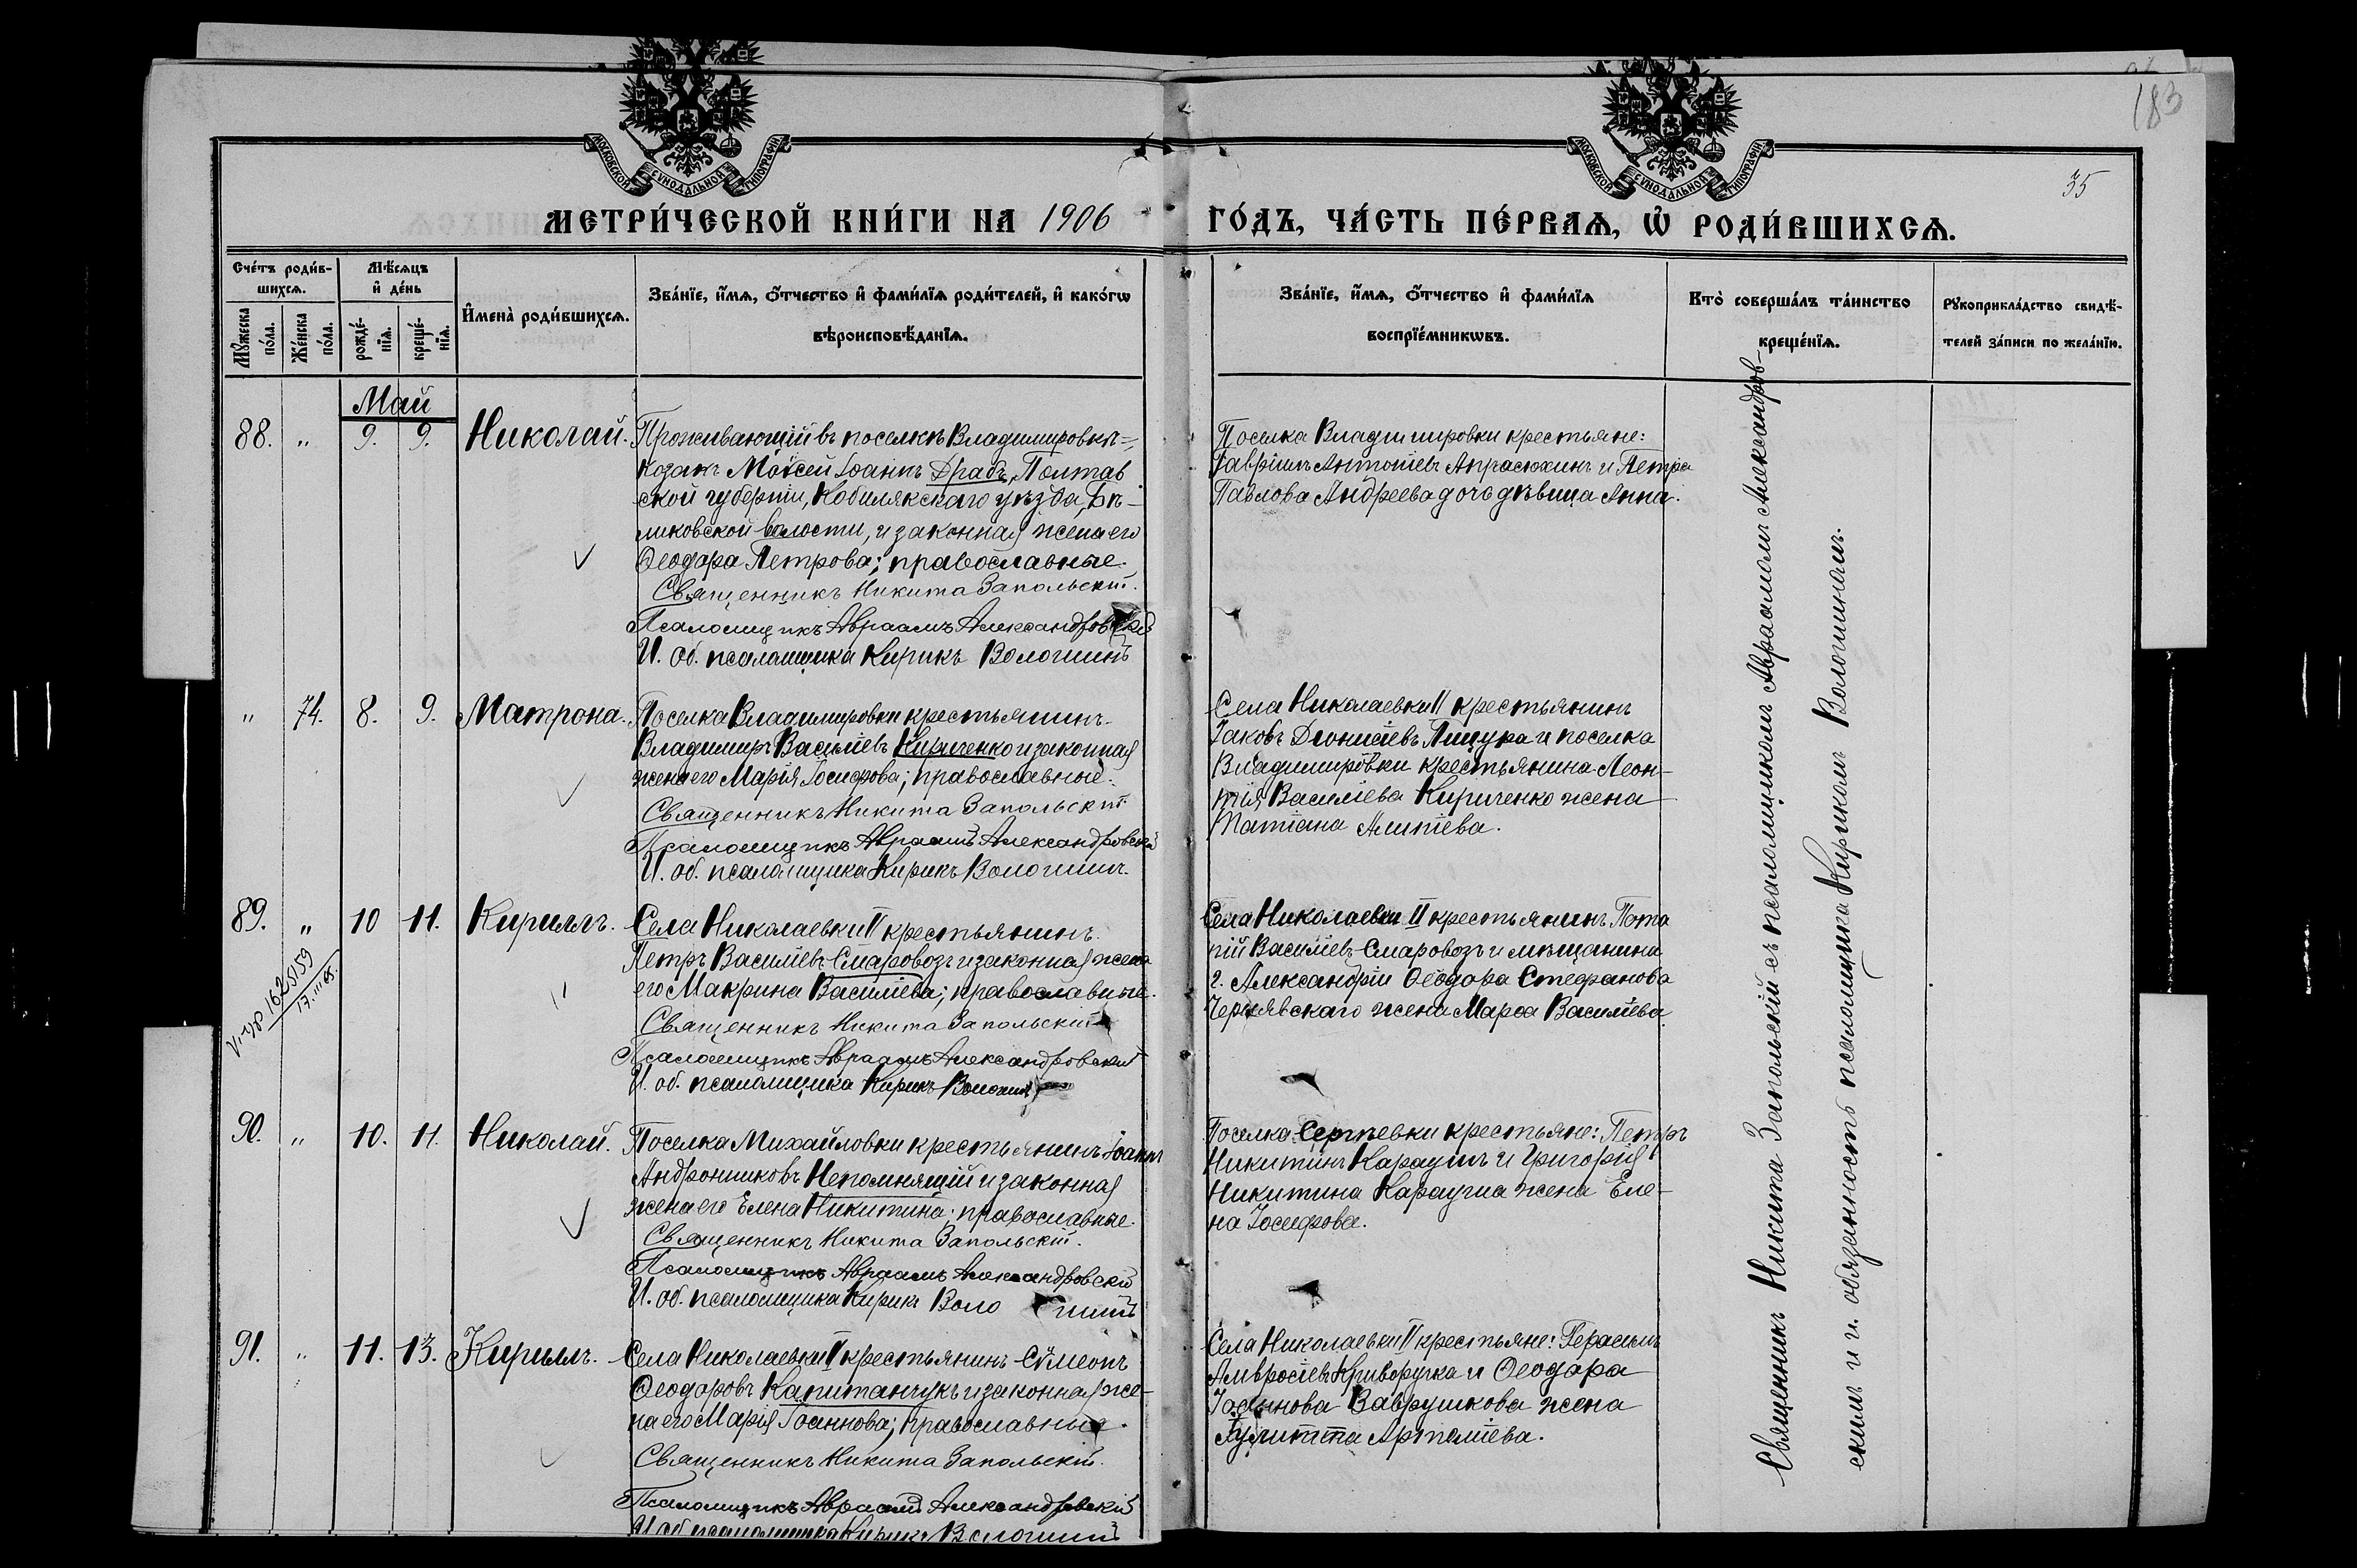 183
35
МОСКОВСКОЙ СѴНОДАЛЬНОЙ ТИПОГРАФІИ
МОСКОВСКОЙ СѴНОДАЛЬНОЙ ТИПОГРАФІИ
МЕТРИ́ЧЕСКОЙ КНИ́ГИ НА 1906 ГО́ДЪ, ЧА́СТЬ ПЕ́РВАѦ, Ѡ҆ РОДИ́ВШИХСѦ.
Сче́тъ роди́в-
шихсѧ.
Мꙋ́жеска по́ла.
Же́нска по́ла.
Мѣ́сѧцъ
и҆ де́нь
рожде́-
нїѧ.
креще́-
нїѧ.
И҆мена̀ роди́вшихсѧ.
Зва́нїе, и҆́мѧ, ѻ҆́тчество и҆ фами́лїѧ роди́телей, и҆ како́гѡ
вѣроисповѣ́данїѧ.
Зва́нїе, и҆́мѧ, ѻ҆́тчество и҆ фами́лїѧ
воспрїе́мникѡвъ.
Кто̀ соверша́лъ та́инство
креще́нїѧ.
Рꙋкоприкла́дство свидѣ́-
телей за́писи по жела́нїю.
Май
88. " 9. 9. Николай.
Проживающій въ поселкѣ Владимировкѣ
козакъ Моѵсей Іоаннъ Драбъ, Полтав
ской губерніи, Кобилякскаго уѣзда, Бѣ-
ликовской волости, и законная жена его
Ѳеодора Петрова; православные.
Священникъ Никита Запольскій.
Псаломщикъ Авраамъ Александровскій
И. об. псаломщика Кирикъ Вологинъ
Поселка Владимировки крестьяне:
Гавріилъ Антоніевъ Апрасюхинъ и Петра
Павлова Андреева дочь дѣвица Анна.
" 74. 8. 9. Матрона.
Поселка Владимировки крестьянинъ
Владимиръ Василіевъ Кириченко и законная
жена его Марія Іосифова; православные.
Священникъ Никита Запольскій
Псаломщикъ Авраамъ Александровскій
И. об. псаломщика Кирикъ Вологинъ.
Села Николаевки II крестьянинъ
Іаковъ Діонисіевъ Пищура и поселка
Владимировки крестьянина Леон-
тія Василіева Кириченко жена
Татіана Алипіева.
89. " 10 11. Кириллъ.
1625159
17.III 65.
Села Николаевки II крестьянинъ
Петръ Василіевъ Смаровозъ и законная жена
его Макрина Василіева; православные.
Священникъ Никита Запольскій
Псаломщикъ Авраамъ Александровскій
И. об. псаломщика Кирикъ Вологинъ
Села Николаевки II крестьянинъ Пота
пій Василіевъ Смаровозъ и мѣщанина
г. Александріи Ѳеодора Стефанова
Чернявскаго жена Марѳа Василіева.
90. " 10. 11. Николай.
Поселка Михайловки крестьянинъ Іоаннъ
Андрониковъ Непомнящій и законная
жена его Елена Никитина; православные.
Священникъ Никита Запольскій.
Псаломщикъ Авраамъ Александровскій
И. об. псаломщика Кирикъ Воло гинъ
Поселка Сергѣевки крестьяне: Петръ
Никитинъ Караулъ и Григорія
Никитина Караула жена Еле-
на Іосифова.
91. " 11. 13. Кириллъ.
Села Николаевки II крестьянинъ Сѵмеонъ
Ѳеодоровъ Капитанчукъ и законная же-
на его Марія Іоаннова; православные.
Священникъ Никита Запольскій.
Псаломщикъ Авраамъ Александровскій
И об псаломщика Кирикъ Вологинъ
Села Николаевки II крестьяне: Герасимъ
Амвросіевъ Криворучка и Ѳеодора
Ваврушкова жена
Іулитта Артеміева.
Священникъ Никита Запольскій съ псаломщикомъ Авраамомъ Александров-
скимъ и и. обязанность псаломщика Кирикомъ Вологинымъ.